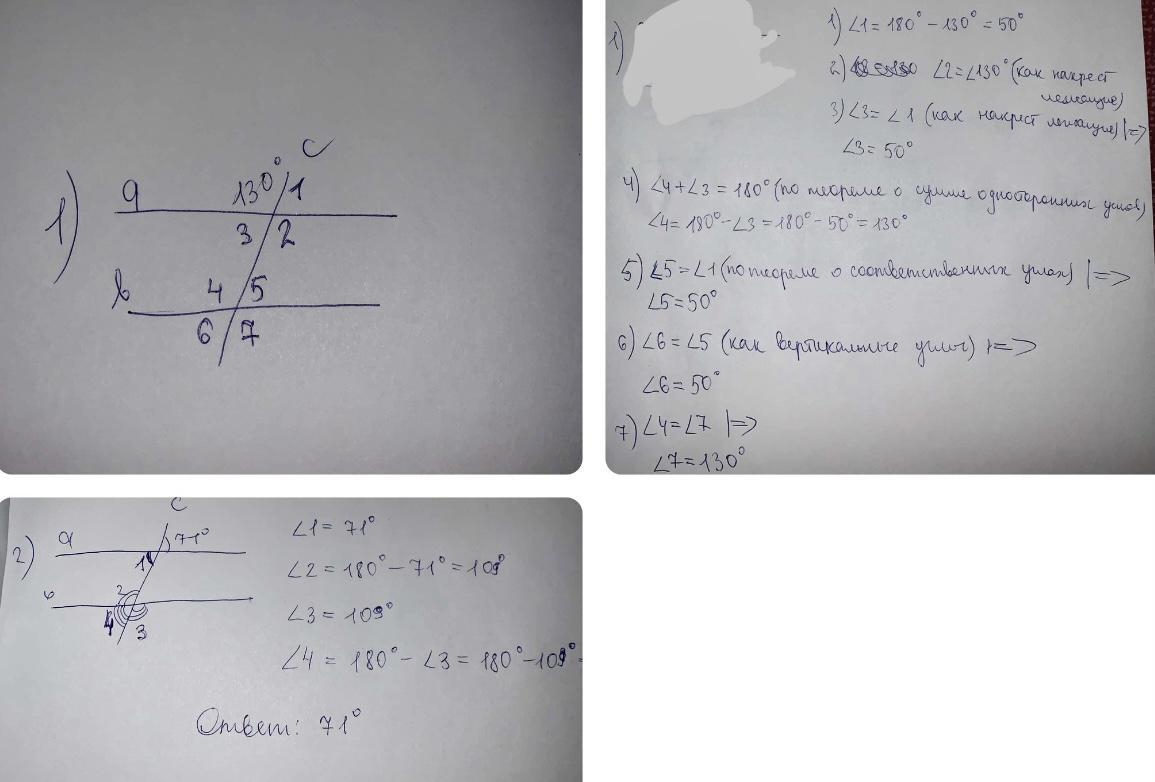 1)
a
130° 1
c
3 2
b
4 5
6 7
1)
1) ∠1 = 180° - 130° = 50°
2) ∠2 = ∠130° (как накрест
лежащие)
3) ∠3 = ∠1 (как накрест лежащие) |=>
∠3 = 50°
4) ∠4 + ∠3 = 180° (по теореме о сумме односторонних углов)
∠4 = 180° - ∠3 = 180° - 50° = 130°
5) ∠5 = ∠1 (по теореме о соответственных углах) |=>
∠5 = 50°
6) ∠6 = ∠5 (как вертикальные углы) |=>
∠6 = 50°
7) ∠4 = ∠7 |=>
∠7 = 130°
2)
a
c
71°
1
в
2
4 3
∠1 = 71°
∠2 = 180° - 71° = 109°
∠3 = 109°
∠4 = 180° - ∠3 = 180° - 109° =
Ответ: 71°